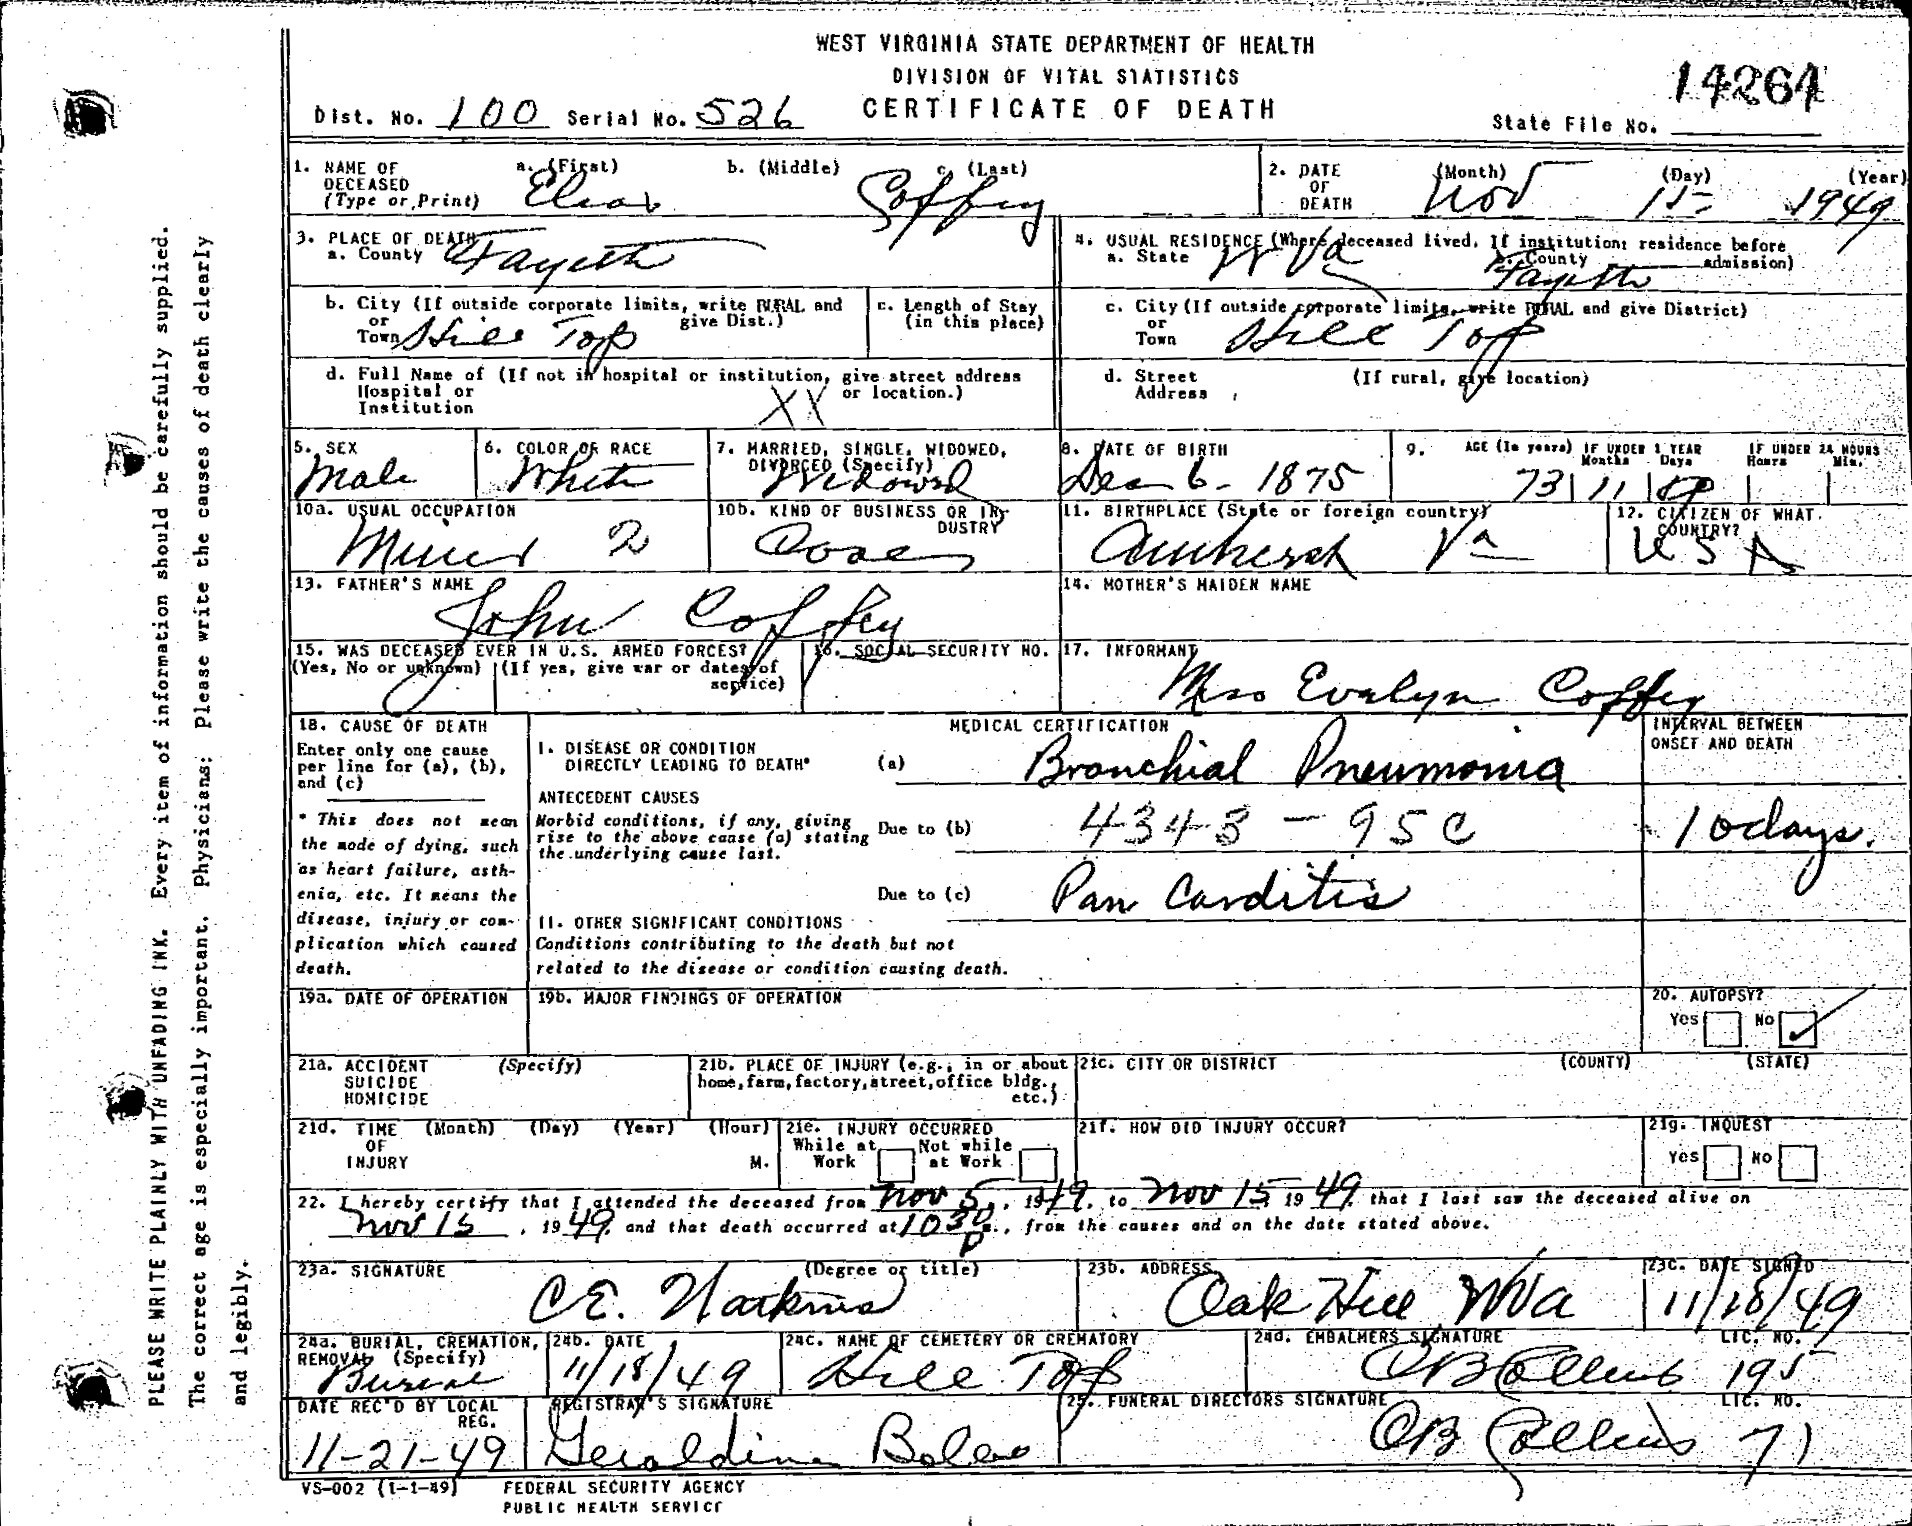 WEST VIRGINIA STATE DEPARTMENT OF HEALTH
DIVISION OF VITAL STATISTICS
CERTIFICATE OF DEATH
14264
Dist. No. 100 Serial No. 526
State File No.
1. NAME OF DECEASED (Type or Print) a. (First) b. (Middle) c. (Last) Coffey
2. DATE OF DEATH (Month) (Day) (Year) Nov 15 1949
3. PLACE OF DEATH
a. County Fayette
4. USUAL RESIDENCE (Where deceased lived. If institution: residence before admission)
a. State W Va b. County Fayette
b. City (If outside corporate limits, write RURAL and give Dist.) or Town Hill Top
c. Length of Stay (in this place)
c. City (If outside corporate limits, write RURAL and give District) or Town Hill Top
d. Full Name of (If not in hospital or institution, give street address or location.) Hospital or Institution XX
d. Street Address (If rural, give location)
5. SEX Male
6. COLOR OR RACE White
7. MARRIED, SINGLE, WIDOWED, DIVORCED (Specify) Widowed
8. DATE OF BIRTH Dec 6 - 1875
9. AGE (In years) 73 IF UNDER 1 YEAR Months 11 Days IF UNDER 24 HOURS Hours Min.
10a. USUAL OCCUPATION Miner 2
10b. KIND OF BUSINESS OR INDUSTRY Coal
11. BIRTHPLACE (State or foreign country) Amherst Va
12. CITIZEN OF WHAT COUNTRY? U S A
13. FATHER'S NAME John Coffey
14. MOTHER'S MAIDEN NAME
15. WAS DECEASED EVER IN U.S. ARMED FORCES? (Yes, No or unknown) (If yes, give war or dates of service)
16. SOCIAL SECURITY NO.
17. INFORMANT Mrs Evalyn Coffey
18. CAUSE OF DEATH
Enter only one cause per line for (a), (b), and (c)
* This does not mean the mode of dying, such as heart failure, asthenia, etc. It means the disease, injury or complication which caused death.
MEDICAL CERTIFICATION
INTERVAL BETWEEN ONSET AND DEATH
I. DISEASE OR CONDITION DIRECTLY LEADING TO DEATH* (a) Bronchial Pneumonia
ANTECEDENT CAUSES
Morbid conditions, if any, giving rise to the above cause (a) stating the underlying cause last.
Due to (b) 4343 - 95C
10 days.
Due to (c) Pan Carditis
II. OTHER SIGNIFICANT CONDITIONS
Conditions contributing to the death but not related to the disease or condition causing death.
19a. DATE OF OPERATION
19b. MAJOR FINDINGS OF OPERATION
20. AUTOPSY?
Yes No ✓
21a. ACCIDENT SUICIDE HOMICIDE (Specify)
21b. PLACE OF INJURY (e.g., in or about home, farm, factory, street, office bldg., etc.)
21c. CITY OR DISTRICT (COUNTY) (STATE)
21d. TIME OF INJURY (Month) (Day) (Year) (Hour) M.
21e. INJURY OCCURRED While at Work Not while at Work
21f. HOW DID INJURY OCCUR?
21g. INQUEST Yes No
22. I hereby certify that I attended the deceased from Nov 5, 1949, to Nov 15 1949 that I last saw the deceased alive on
Nov 15, 1949 and that death occurred at 1030 P m., from the causes and on the date stated above.
23a. SIGNATURE (Degree or title) C E. Watkins
23b. ADDRESS Oak Hill W Va
23c. DATE SIGNED 11/18/49
24a. BURIAL, CREMATION, REMOVAL (Specify) Burial
24b. DATE 11/18/49
24c. NAME OF CEMETERY OR CREMATORY Hill Top
24d. EMBALMERS SIGNATURE LIC. NO. OB Collins 195
DATE REC'D BY LOCAL REG. 11-21-49
REGISTRAR'S SIGNATURE Geraldine
25. FUNERAL DIRECTORS SIGNATURE LIC. NO. OB Collins 71
VS-002 (1-1-49)
FEDERAL SECURITY AGENCY
PUBLIC HEALTH SERVICE
PLEASE WRITE PLAINLY WITH UNFADING INK. Every item of information should be carefully supplied.
The correct age is especially important. Physicians: Please write the causes of death clearly
and legibly.